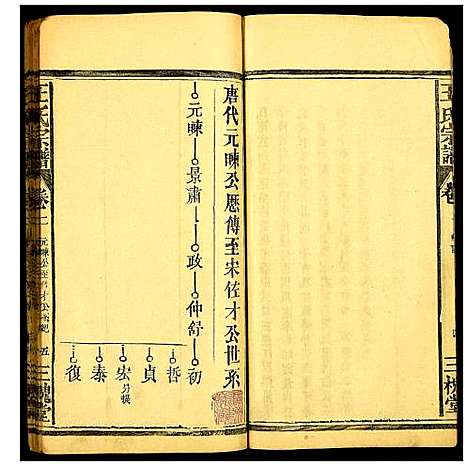 王氏宗譜
卷
三槐堂
唐代元暕公歷傳至宋佐才公世系
元暕 景肅 政 仲舒 初
哲
貞
宏
泰
復
王氏宗譜
卷
五
三槐堂